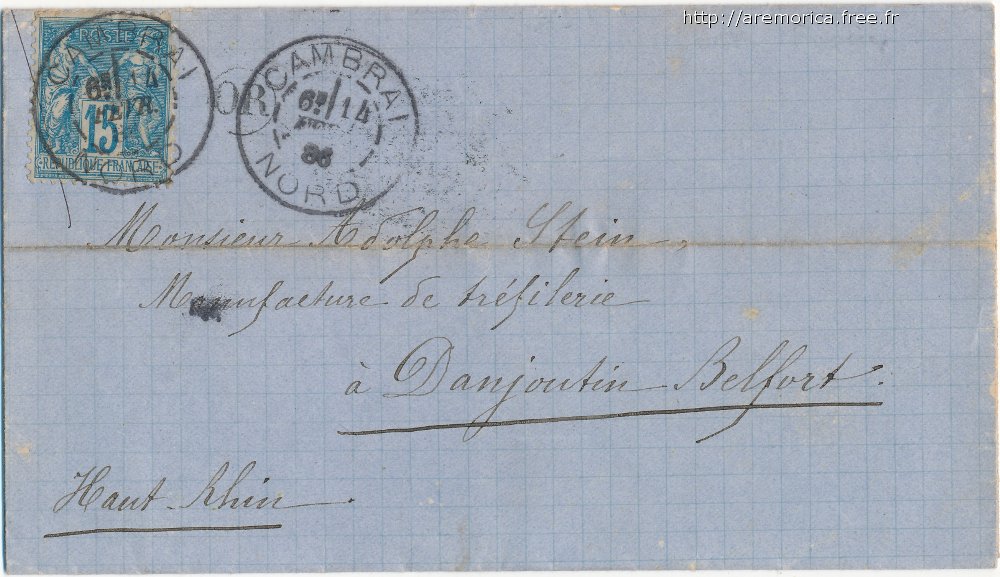 http://aremorica.free.fr
POSTE
15
REPUBLIQUE FRANÇAISE
CAMBRAI
6E 14
FEVR.
NORD
OR
CAMBRAI
6E 14
86
NORD
Monsieur Adolphe Stein,
Manufacture de tréfilerie
à Danjoutin Belfort.
Haut-Rhin.